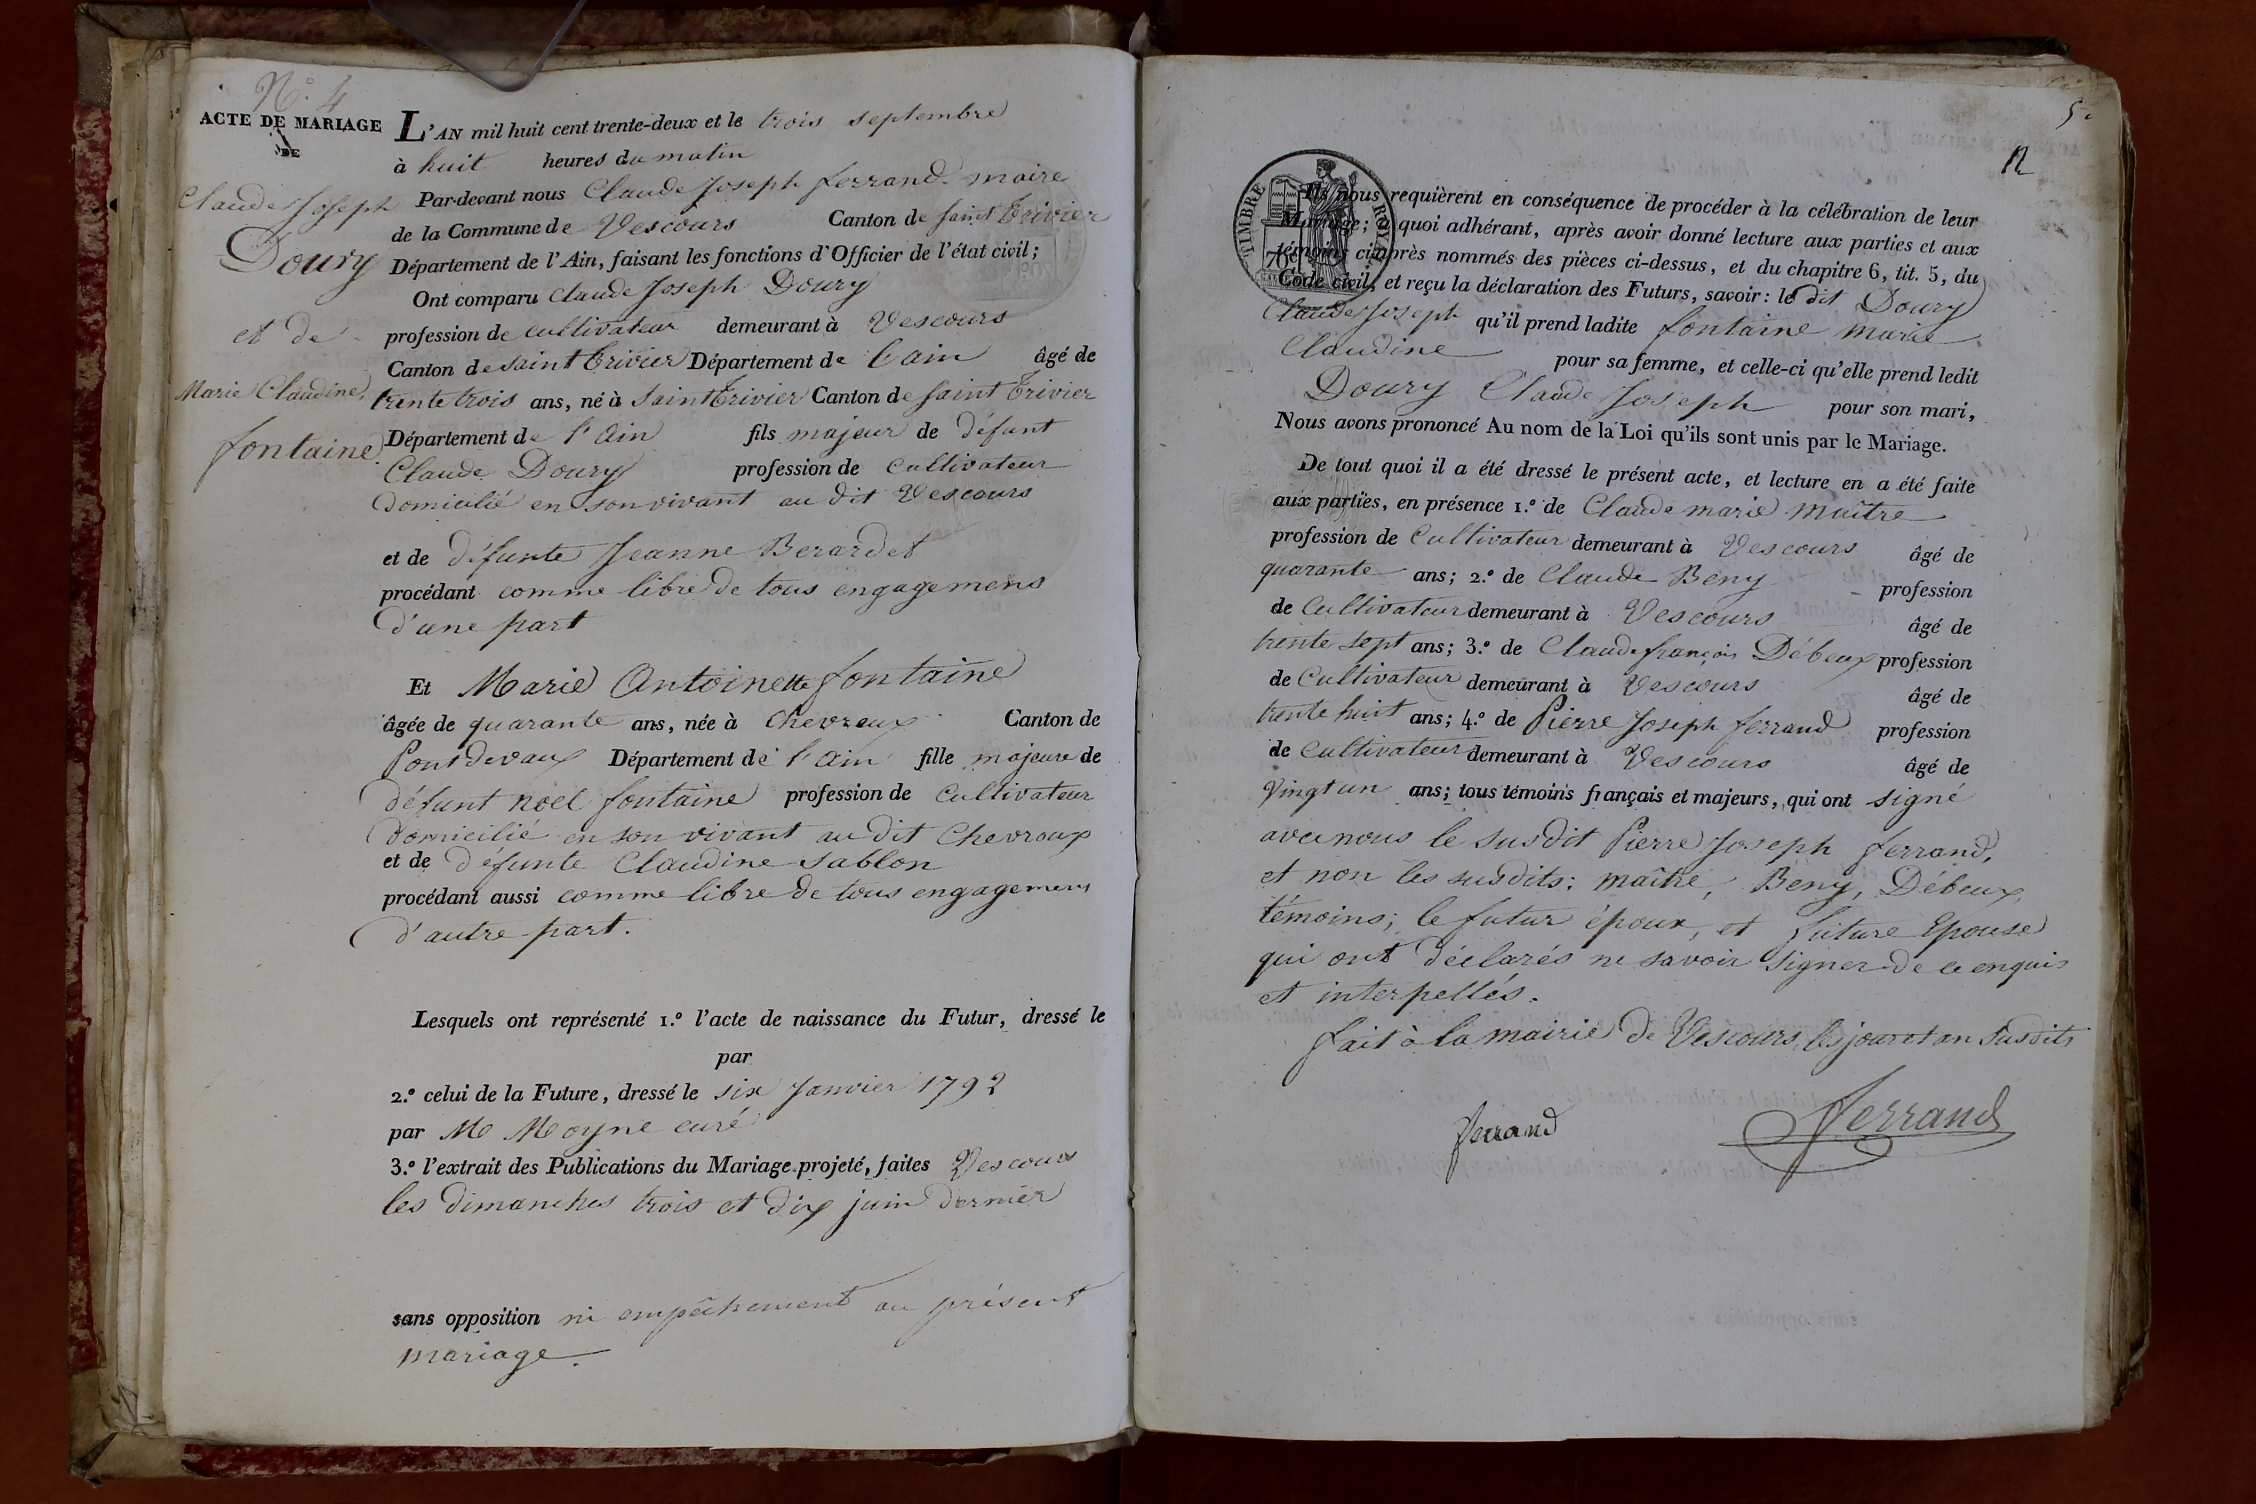 N.º 4
ACTE DE MARIAGE
DE
Claude Joseph
Doury
et de
Marie Claudine
fontaine
L'AN mil huit cent trente-deux et le trois septembre
à huit heures du matin
Par-devant nous Claude Joseph ferrand maire
de la Commune de Vescours Canton de saint trivier
Département de l'Ain, faisant les fonctions d'Officier de l'état civil;
Ont comparu Claude Joseph Doury
profession de cultivateur demeurant à Vescours
Canton de saint trivier Département de l'ain âgé de
trente trois ans, né à saint trivier Canton de saint trivier
Département de l'ain fils majeur de défunt
Claude Doury profession de cultivateur
domicilié en son vivant au dit Vescours
et de défunte Jeanne Berardet
procédant comme libre de tous engagemens
d'une part
Et Marie Antoinette fontaine
âgée de quarante ans, née à Chevroux Canton de
Pontdevaux Département de l'ain fille majeure de
défunt noël fontaine profession de Cultivateur
domicilié en son vivant au dit Chevroux
et de défunte Claudine sablon
procédant aussi comme libre de tous engagemens
d'autre part.
Lesquels ont représenté 1.º l'acte de naissance du Futur, dressé le
par
2.º celui de la Future, dressé le six Janvier 1792
par M Moyne curé
3.º l'extrait des Publications du Mariage projeté, faites Vescours
les dimanches trois et dix juin dernier
sans opposition ni empêchement au présent
mariage.
5
12
TIMBRE ROYAL
Ils nous requièrent en conséquence de procéder à la célébration de leur
Mariage; à quoi adhérant, après avoir donné lecture aux parties et aux
témoins ci-après nommés des pièces ci-dessus, et du chapitre 6, tit. 5, du
Code civil, et reçu la déclaration des Futurs, savoir: le dit Doury
Claude Joseph qu'il prend ladite fontaine marie
Claudine pour sa femme, et celle-ci qu'elle prend ledit
Doury Claude Joseph pour son mari,
Nous avons prononcé Au nom de la Loi qu'ils sont unis par le Mariage.
De tout quoi il a été dressé le présent acte, et lecture en a été faite
aux parties, en présence 1.º de Claude marie maître
profession de Cultivateur demeurant à Vescours âgé de
quarante ans; 2.º de Claude Beny profession
de Cultivateur demeurant à Vescours âgé de
trente sept ans; 3.º de Claude françois Débeux profession
de Cultivateur demeurant à Vescours âgé de
trente huit ans; 4.º de Pierre Joseph ferrand profession
de Cultivateur demeurant à Vescours âgé de
Vingt un ans; tous témoins français et majeurs, qui ont signé
avec nous le susdit Pierre Joseph ferrand,
et non les susdits: maître, Beny, Débeux,
témoins; le futur époux, et future Epouse
qui ont déclarés ne savoir signer de ce enquis
et interpellés.
fait à la mairie de Vescours, les jour et an susdits
ferrand
ferrand